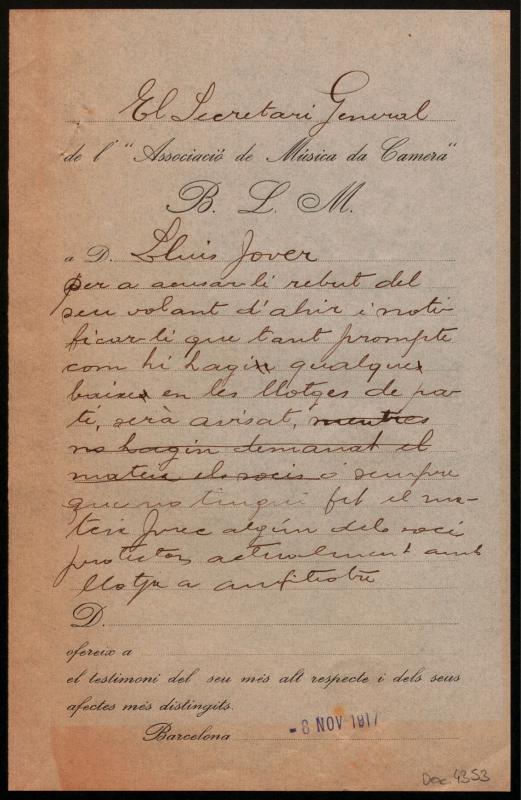 El Secretari General
de l' "Associació de Música da Camera"
B. L. M.
a D. Lluis Jover
per a acusar-li rebut del
seu volant d'ahir i noti-
ficar-li que tant prompte
com hi hagin qualque
baixe en les llotges de pa-
ti, serà avisat, mentres
no hagin demanat el
mateix els socis o sempre
que no tingui fet el ma-
teix prec algún dels soci
protectors actualment amb
llotja a amfiteatre
D.
ofereix a
el testimoni del seu més alt respecte i dels seus
afectes més distingits.
Barcelona - 8 NOV 1917
Doc. 4353